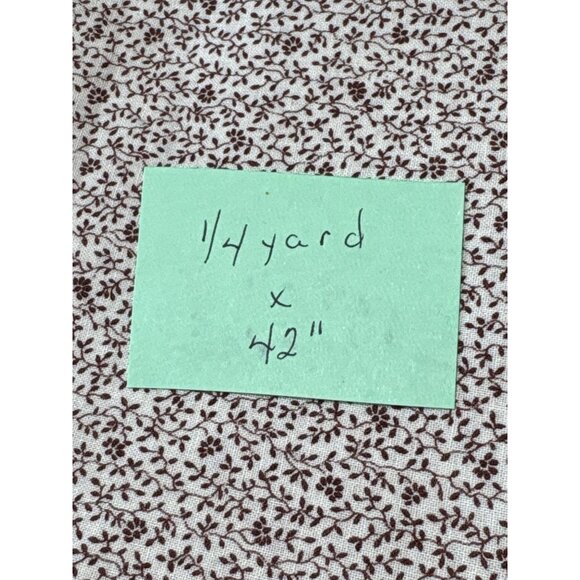 1/4 yard
x
42"